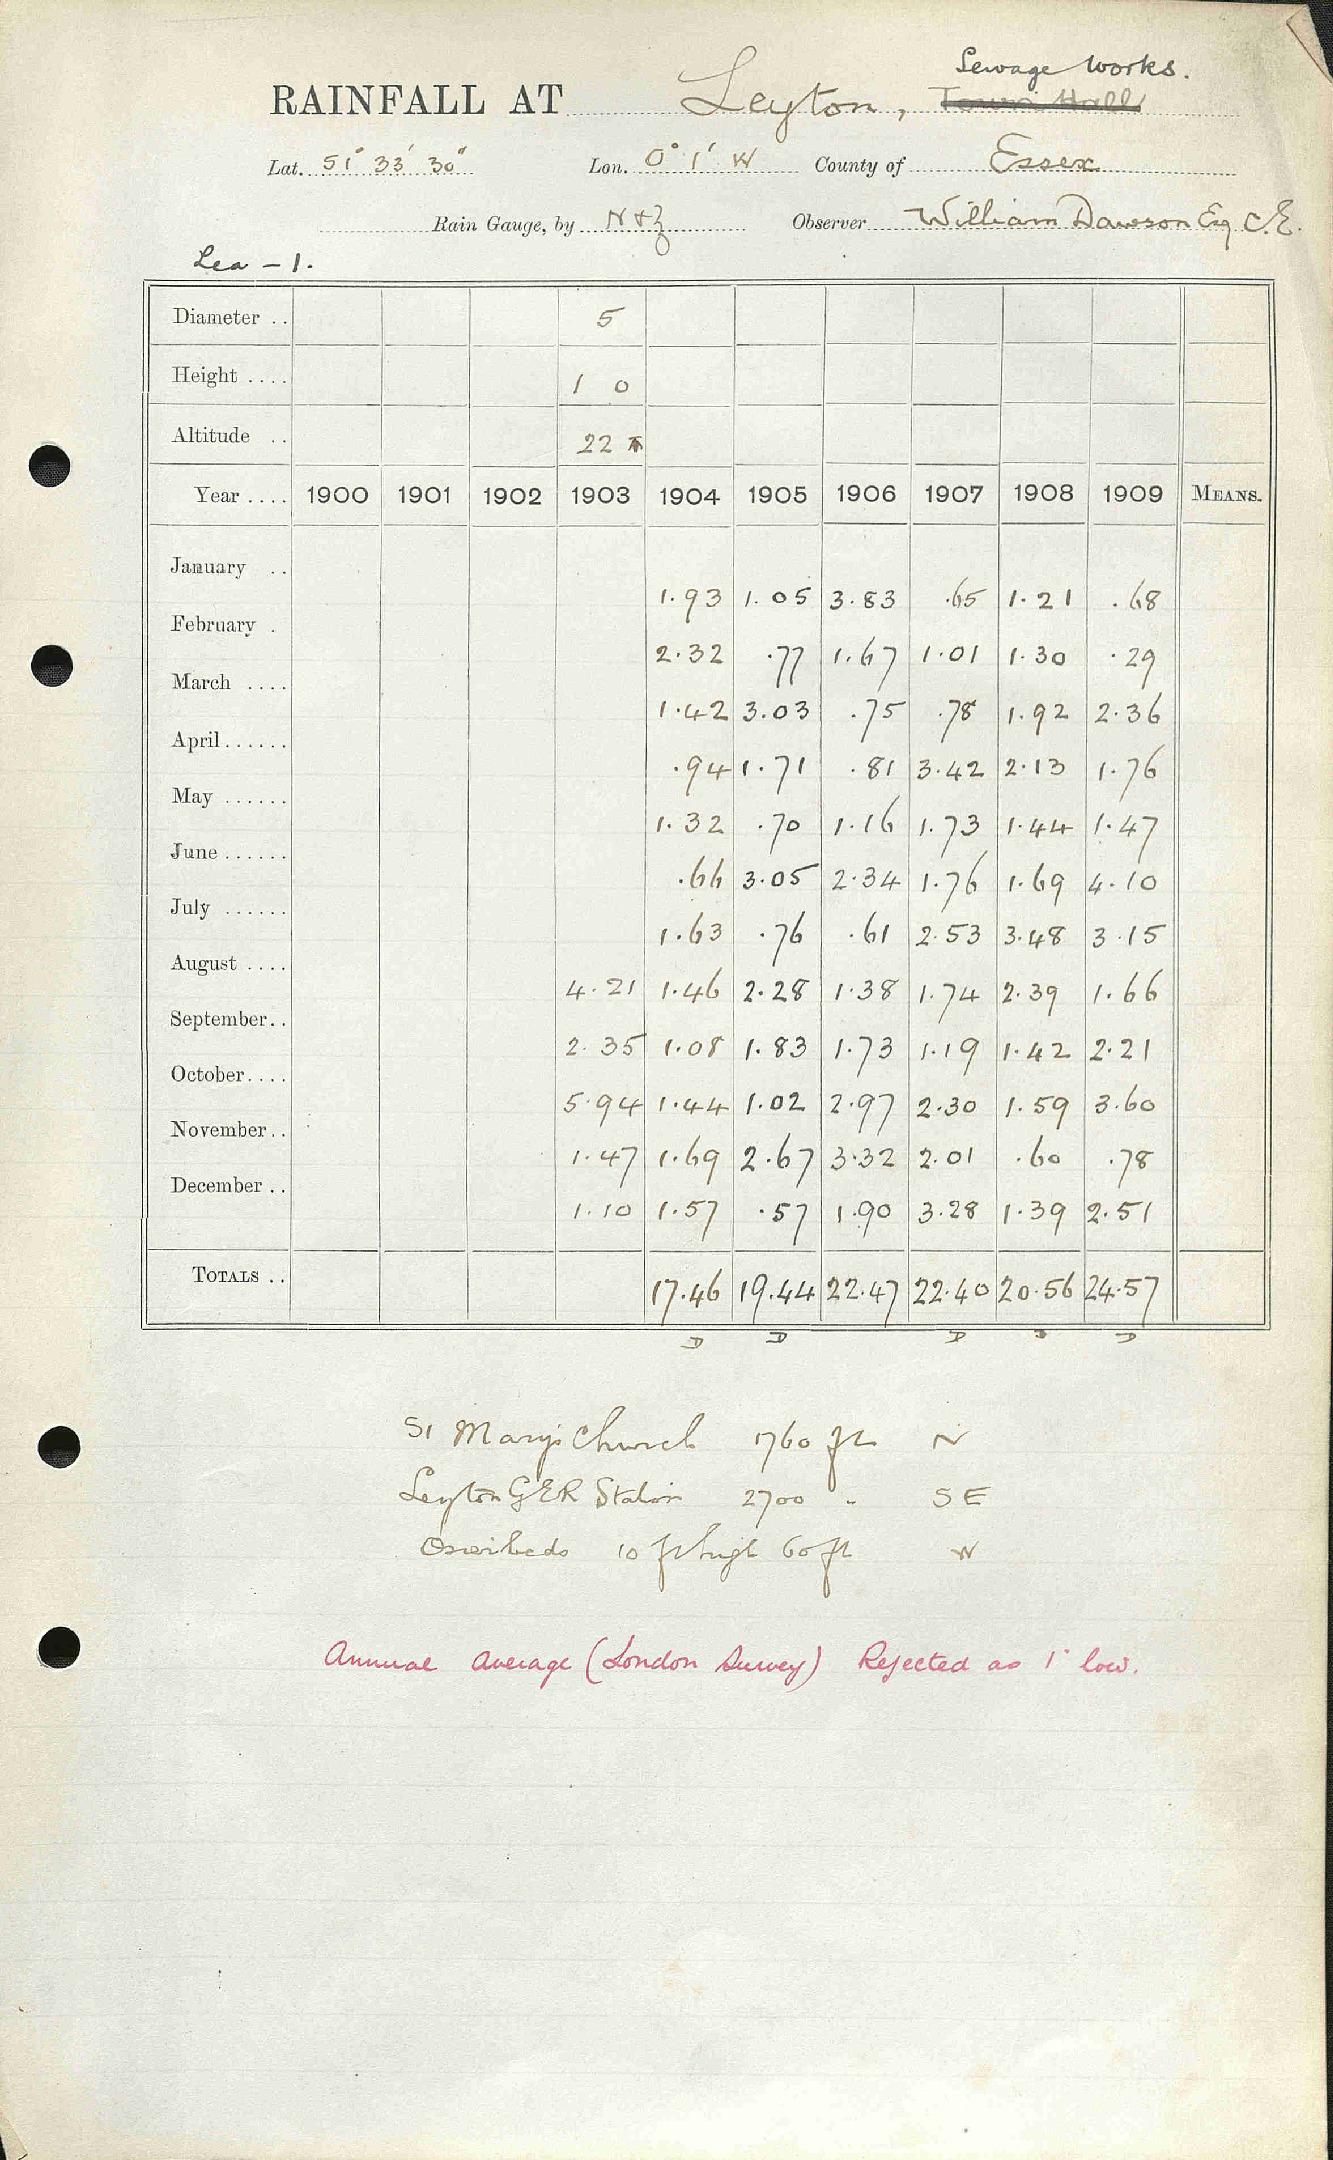 Sewage Works.
RAINFALL AT Leyton, Town Hall
Lat. 51° 33' 30" Lon. 0° 1' W County of Essex
Rain Gauge, by N & Z Observer William Dawson Esq C.E.
Lea - 1.
Diameter .. 5
Height .... 1 0
Altitude .. 22
Year .... 1900 1901 1902 1903 1904 1905 1906 1907 1908 1909 MEANS.
January .. 1.93 1.05 3.83 .65 1.21 .68
February . 2.32 .77 1.67 1.01 1.30 .29
March .... 1.42 3.03 .75 .78 1.92 2.36
April...... .94 1.71 .81 3.42 2.13 1.76
May ...... 1.32 .70 1.16 1.73 1.44 1.47
June ...... .66 3.05 2.34 1.76 1.69 4.10
July ...... 1.63 .76 .61 2.53 3.48 3.15
August .... 4.21 1.46 2.28 1.38 1.74 2.39 1.66
September.. 2.35 1.08 1.83 1.73 1.19 1.42 2.21
October.... 5.94 1.44 1.02 2.97 2.30 1.59 3.60
November.. 1.47 1.69 2.67 3.32 2.01 .60 .78
December .. 1.10 1.57 .57 1.90 3.28 1.39 2.51
TOTALS .. 17.46 19.44 22.47 22.40 20.56 24.57
D D D D
St Mary's Church 1760 ft N
Leyton GER Station 2700 " SE
Osierbeds 10 ft high 60 ft W
Annual average (London Survey) Rejected as 1" low.